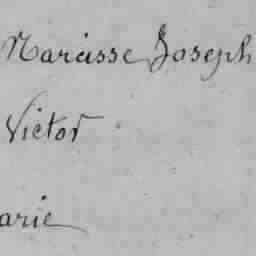 Narcisse Joseph
Victor
arie